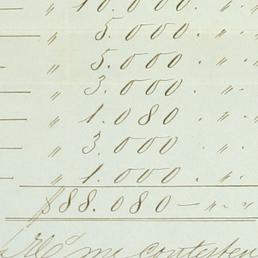 — " 10.000. " "
" 5.000 " "
— " 5.000 . " "
— " 3.000 . " "
— " 1.080 . " "
— " 3.000 " "
— " 1.000 " "
$88.080 — " "
me contesten